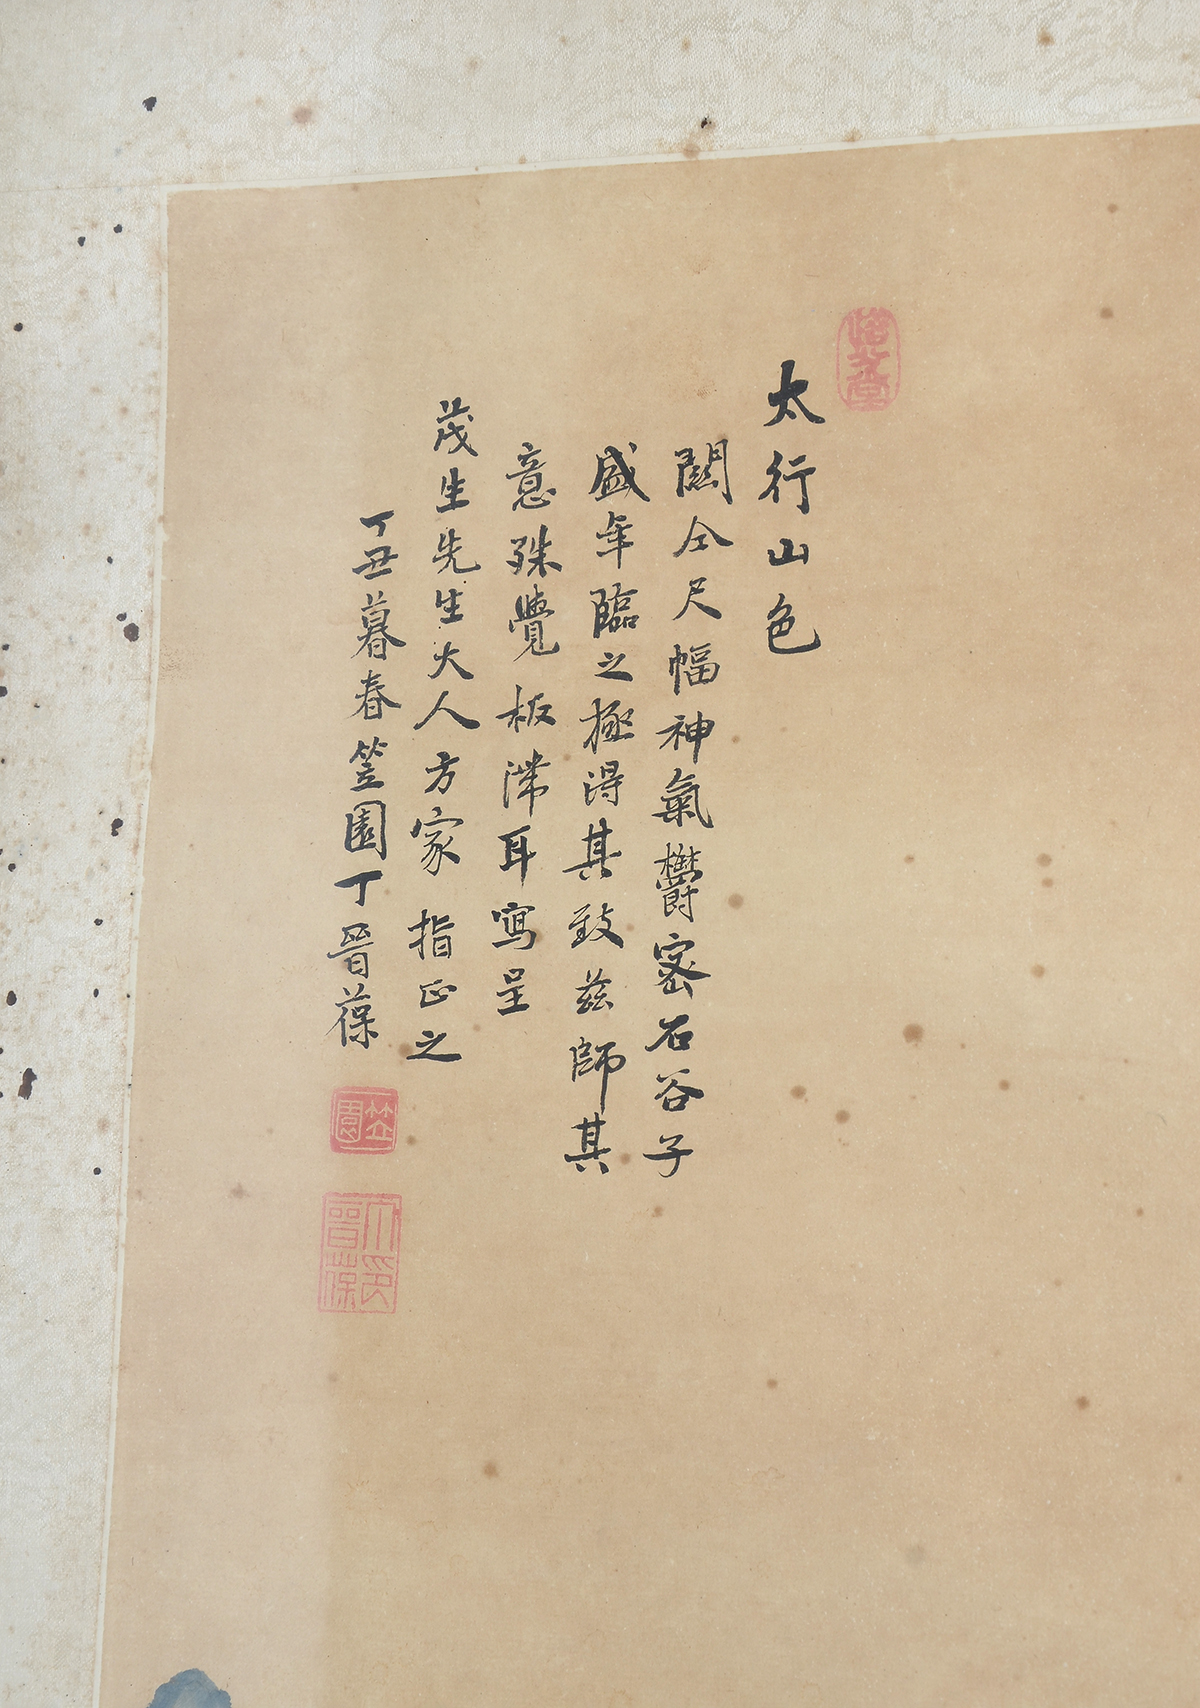 太行山色
關仝尺幅神氣鬱密石谷子
盛年臨之極得其致茲師其
意殊覺板滯耳寫呈
茂生先生大人方家指正之
丁丑暮春笠園丁晉葆
笠園
丁晉葆印